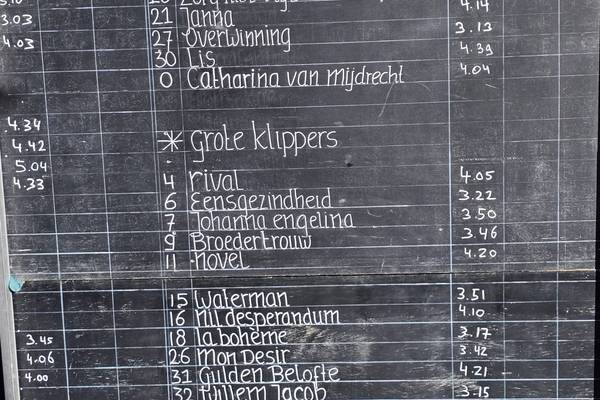 4.14
3.03 21 Janna 3.13
4.03 27 Overwinning 4.39
30 Lis 4.04
0 Catharina van Mijdrecht
4.34
4.42 * grote klippers
5.04
4.33 4 rival 4.05
6 Eensgezindheid 3.22
7 Johanna engelina 3.50
9 Broedertrouw 3.46
11 novel 4.20
15 Waterman 3.51
16 nil desperandum 4.10
3.45 18 la bohème 3.17
4.06 26 Mon Desir 3.42
4.00 31 Gulden Belofte 4.21
32 Willem Jacob 3.15